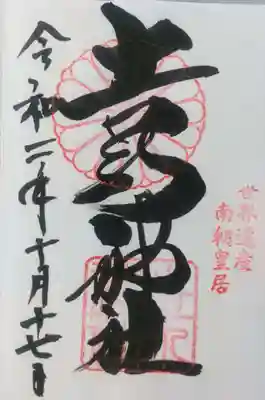 世界遺産
南朝皇居
吉水神社
令和二年十月十七日